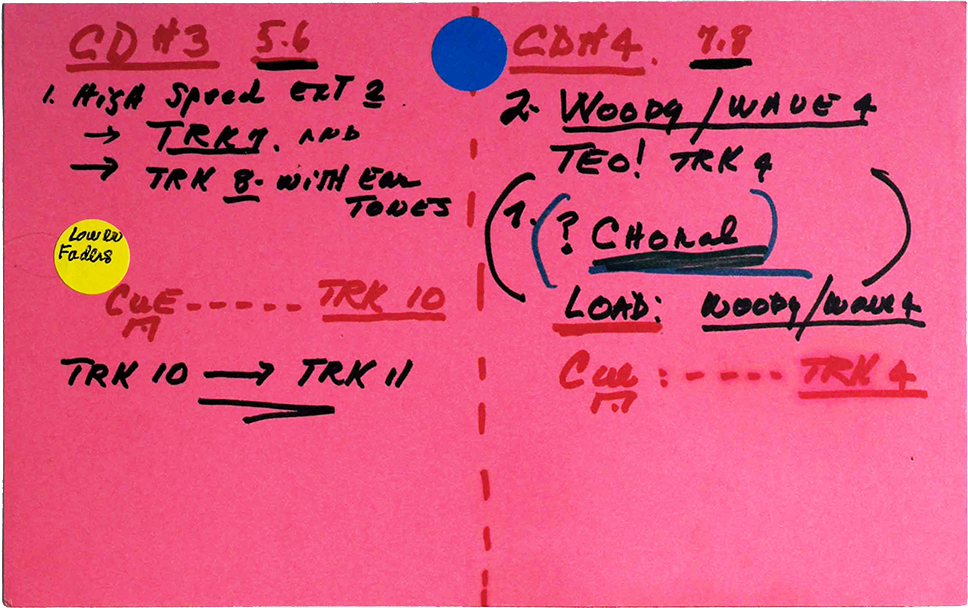 CD #3 5.6
1. High Speed EXT 2
→ TRK 7. AND
→ TRK 8 - WITH EAR
TONES
Lower
Faders
CUE ------ TRK 10
TRK 10 → TRK 11
CD#4. 7.8
2. WOODY/WAVE 4
TEO! TRK 4
1. (? CHORAL)
LOAD: WOODY/WAVE 4
Cue : ----- TRK 4